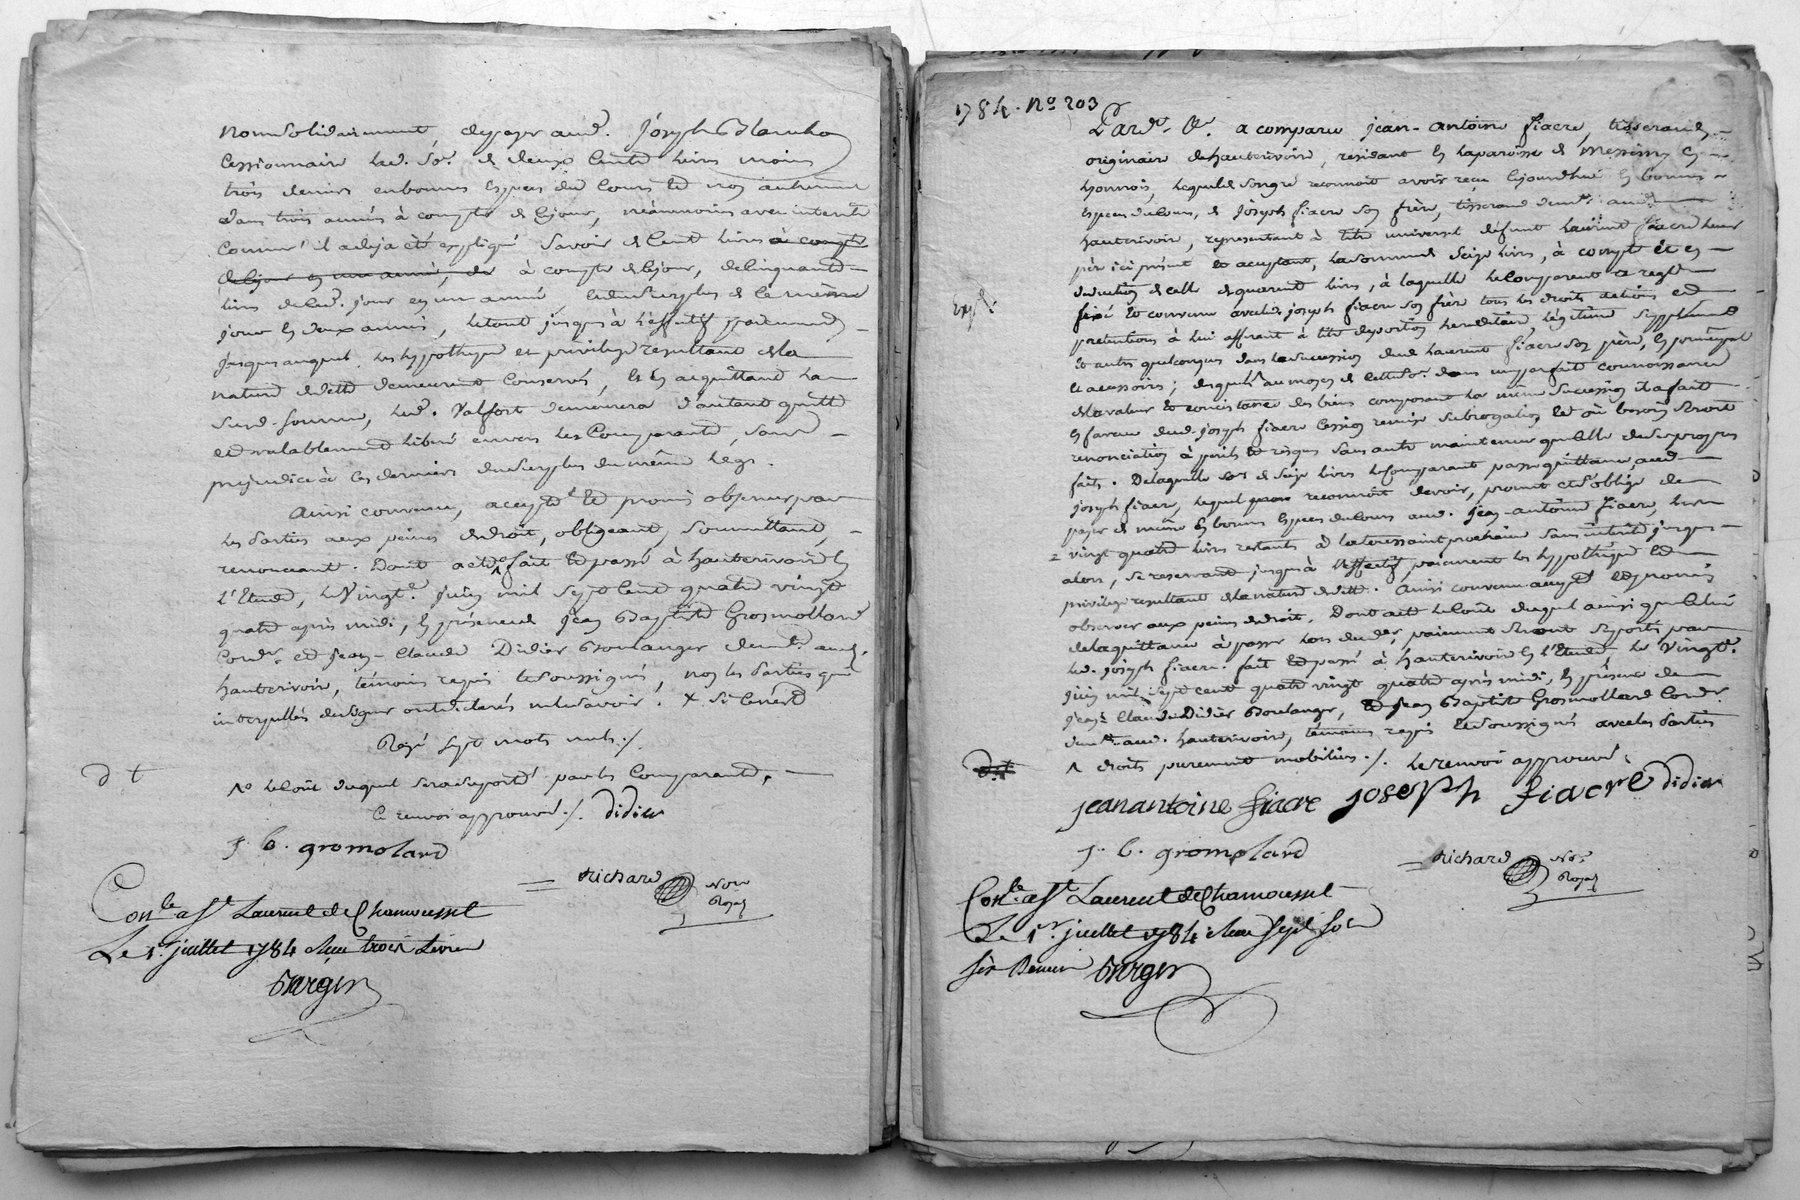 non solidairement, de payer aud. Joseph Blanchon
cessionnaire lad. so. de deux cents livres moins
trois deniers en bonnes especes du cours et non autrement
dans trois années à compter de ce jour, néanmoins avec interets
comme il a deja été expliqué savoir de cent livres à compter
de ce jour en une année, de à compter de ce jour, de cinquante
livres de lad. jour en un année, et du surplus de le même
jour en deux années, le tout jusqu'à l'effectif paiement
jusques auquel les hypotheque et privilege resultant de la
nature de dette demeurent conservés, et en acquittant la
susd. somme, led. Valfort demeurera d'autant quitte
et valablement liberé envers les Comparants, sans
prejudice à ces derniers du surplus du même legs.
Ainsi convenu, accepté et promis observer par
les parties aux peines de droit, obligeant, soumettant,
renonceant. Dont acte fait et passé à hauterivoire en
l'Etude, le vingt. juin mil sept cent quatre vingt
quatre après midi, en présence de Jean Baptiste Grosmollard
Cord. et Jean-Claude Didier Boulanger dem. aud.
hauterivoire, témoins requis et soussignés, non les parties qui
interpellés de signer ont declarés ne le savoir.
Rayé sept mots nuls ./.
d t
le coût duquel sera suporté par les Comparants,
Ce renvoi approuvé ./. didier
J. b. gromolard
richard Nore Royal
Conlé a St Laurent de Chamousset
Le 1er juillet 1784 Reçu trois Livres
Barger
1784. No 203
Pardt. &. a comparu Jean-Antoine fiacre, tisserand
originaire de hauterivoire, residant en la paroisse de Messimy en
lyonnois, lequel de son gré reconnoit avoir reçu cejourd'hui en bonnes
especes du cours, de Joseph fiacre son frère, tisserand demt. aud.
hauterivoire, representant à titre universel defunt Laurent fiacre leur
père ici présent et acceptant, la somme de seize livres, à compte et en
deduction de celle de quarente livres, à laquelle le comparent a reglé
fixé et convenu avec led. joseph fiacre son frère tous les droits actions et
pretentions à lui afferant à titre de portion hereditaire, légitime supplement
et autres quelconques dans la succession dud. Laurent fiacre son père, en principal
et accessoires; desquels au moyen de cette so. dans un parfait connoissance
de la valeur et consistance des biens composant la même succession il a fait
en faveur dud. Joseph fiacre cession remise subrogation et où besoin seroit
renonciation à perils et risques sans autre maintenue que celle de ses propres
faits. De laquelle so. de seize livres le comparant passe quittance aud.
joseph fiacre, lequel reconnoit devoir, promet et s'oblige de
payer de même en bonnes especes du cours aud. Jean-antoine fiacre, les
vingt quatre livres restants à la toussaint prochaine sans interets jusques
alors, se reservant jusqu'à l'effectif paiement les hypotheque et
privilege resultant de la nature de dette. Ainsi convenu accepté et promis
observer aux peines de droit. Dont acte le coût duquel ainsi que celui
de la quittance à passer lors du der. paiement seront suportés par
led. Joseph fiacre. fait et passé à hauterivoire en l'Etude le vingt.
juin mil sept cent quatre vingt quatre après midi, en présence de
Jean Claude Didier Boulanger, et Jean Baptiste Grosmollard Cordr.
demt. aud. hauterivoire, témoins requis et soussignés avec les parties
droits purement mobiliers ./. le renvoi approuvé.
jeanantoine fiacre joseph fiacre didier
J. b. gromolard
richard Nore Royal
Conlé a St Laurent de Chamousset
Le 1er juillet 1784 Reçu sept sols
six Deniers Barger